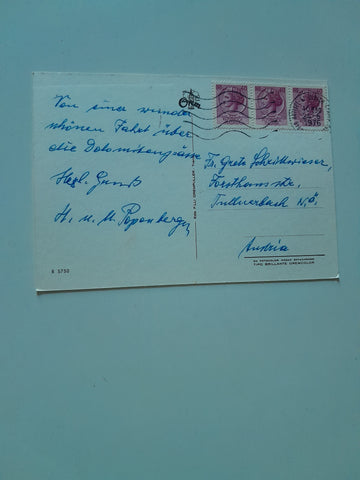 Von einer wunder
schönen Fahrt über
die Dolomitenpässe
Herzl. Gruß
H. u. M. Popenberger
Fr. Grete Schrittwieser,
Forsthausstr.
Tullnerbach N.Ö.
Austria
K 5750
TIPO BRILLANTE GREACOLOR